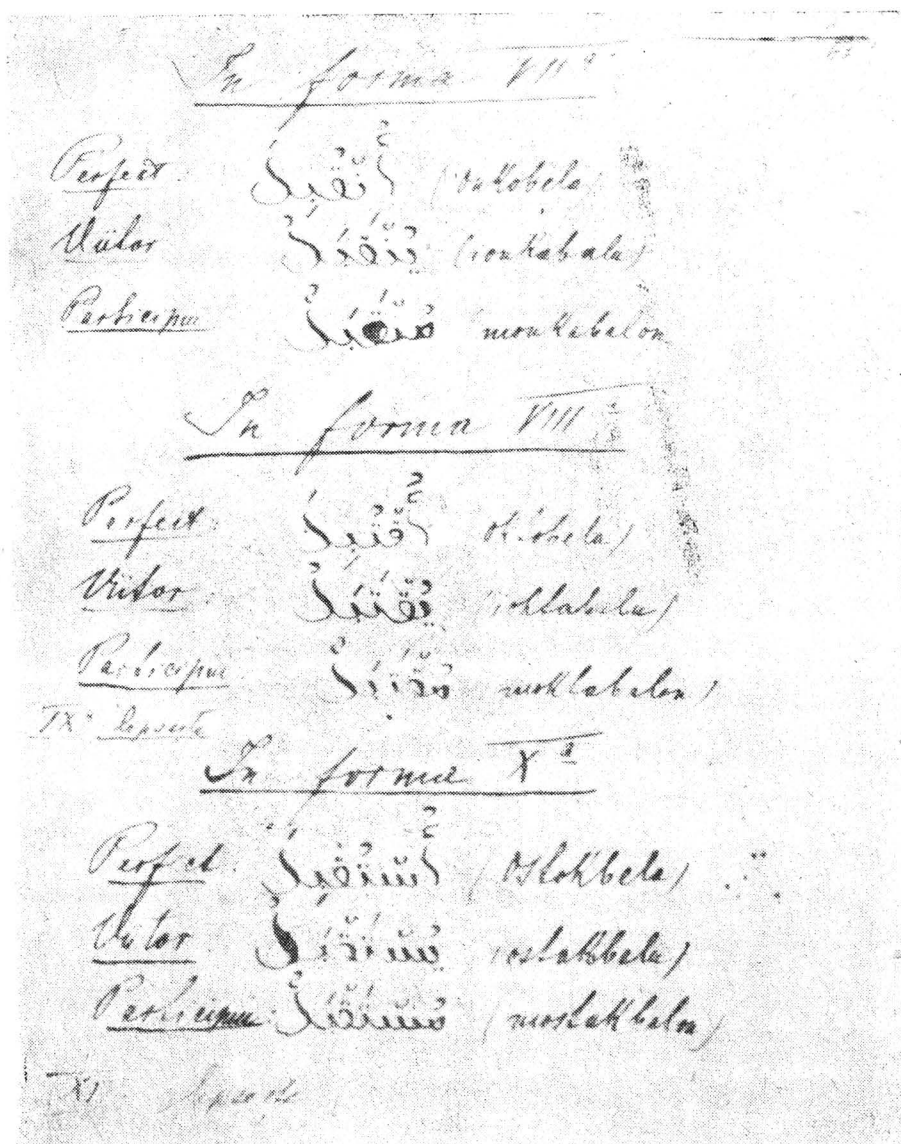 In forma VIIa
Perfect. أُنْقُبِلَ (onkobela)
Viitor يُنْقَبَلُ (ionkabalu)
Participiu مُنْقَبَلٌ monkabalon
In forma VIIIa
Perfect أُقْتُبِلَ
Viitor يُقْتَبَلُ
Participiu مُقْتَبَلٌ moktabalon)
IXa lipseste
In forma Xa
Perfect. أُسْتُقْبِلَ (ostokbela)
Viitor يُسْتَقْبَلُ
Participiu مُسْتَقْبَلٌ (mostakbalon)
XI lipseste